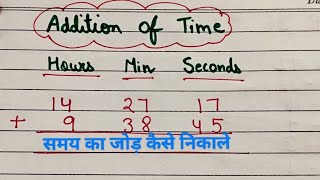 Addition of Time
Hours Min Seconds
14 27 17
+ 9 38 45
समय का जोड़ कैसे निकालें